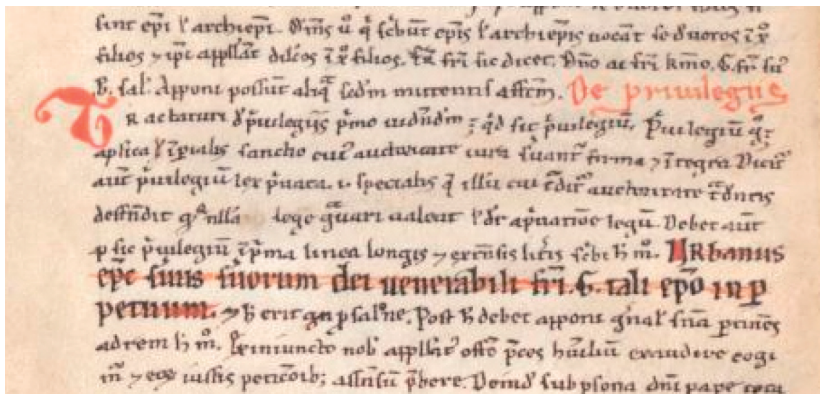 sunt epi ł archiepi. Oms u̅ q̇ scbunt epis ł archiepis uocant se deuotos i̅ xp̅o
filios ⁊ ipi appllant dilcos i̅ xp̅o filios. frī sic dicet. Dn̅o ac frī kmo. G. frī su̅
B. sal. Apponi possunt aliq̅ scdm mittentis affcm. De priuilegiis
Ractaturi de p̅uilegiis p̅mo uidndm ; qd sit p̅uilegiu̅. P̅uilegiu̅
aplica ł i̅p̅ialis sanctio cui auctoritate iura seruant forma ⁊ i̅tegra Dicit̅
aut̅ p̅uilegiu̅ lex p̅uata. i. specialis q̅ illu̅ cui auctoritate
defendit qͣ nlla lege gͣuari ualeat ł dr̅ a p̅uatio̅e legu̅. Debet aut̅
p̅uilegiu̅ i̅ p̅ma linea longis ⁊ exte̅sis litis sc̅bi h̅ mo̅. URbanus
epc̅ seruus seruorum dei uenerabili fri̅. G. tali ep̅o in p̅
petuum. ⁊ h̅ erit p̅ salōne. Post h̅ debet apponi gn̅al sn̅ia p̅tine̅s
ad rem h̅ mo̅. Ex iniuncto nob̅ appll̅at̅ off̅o p̅ces hu̅iliu̅ exaudire cogi
m̅ ⁊ eo̅ iustis peticōib; asse̅su̅ p̅bere. Deind̅ sub p̅sona dn̅i pape